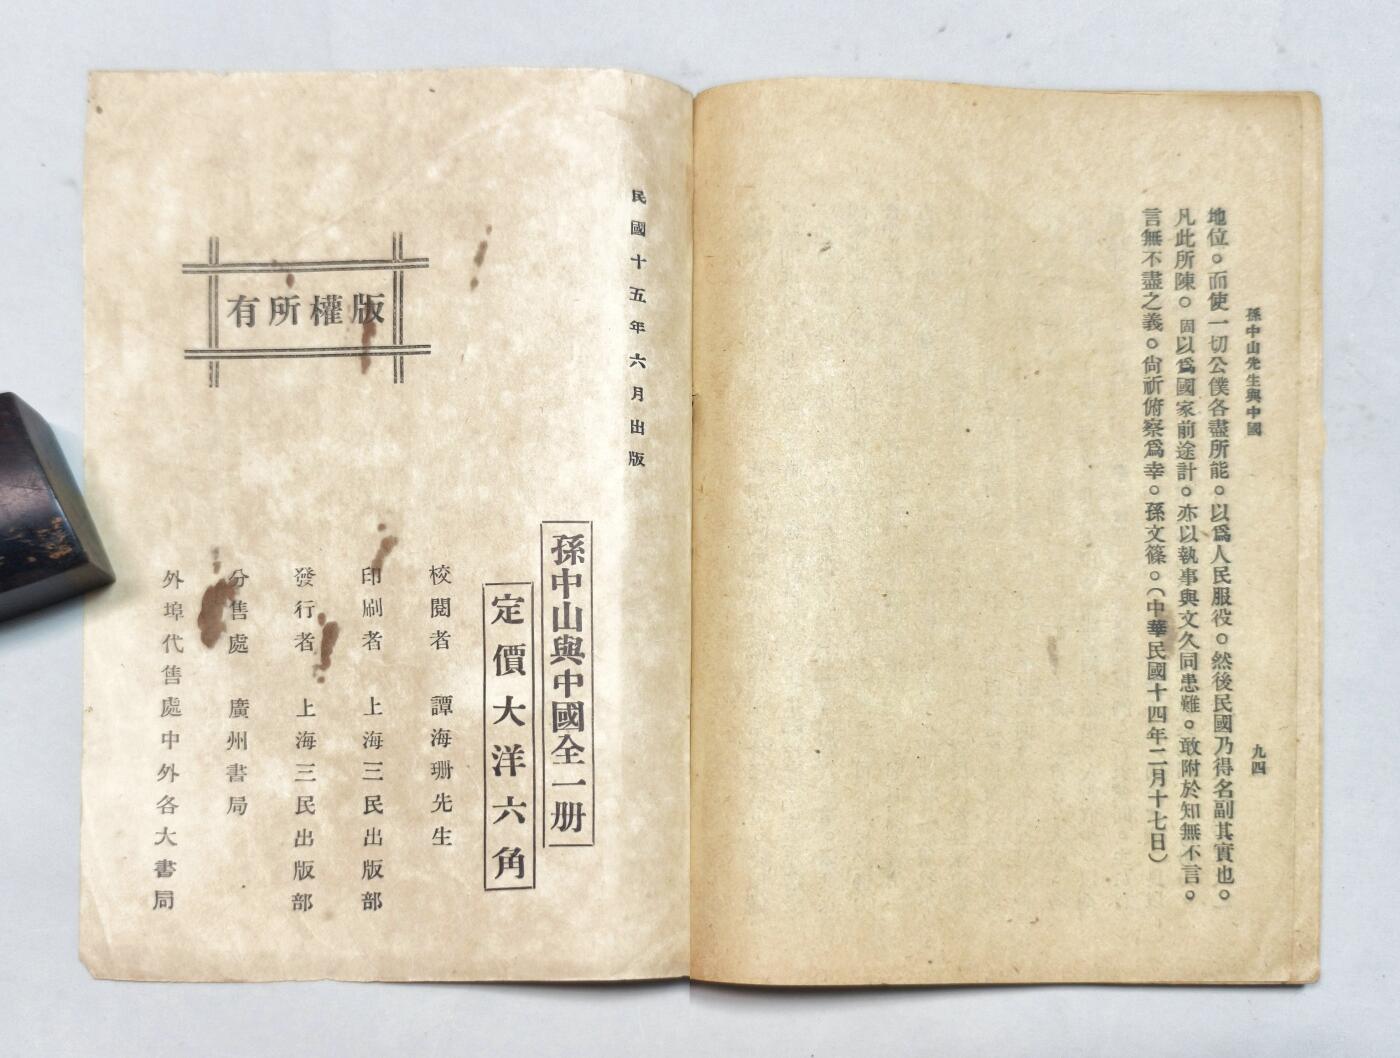 孫中山先生與中國
九四
地位。而使一切公僕各盡所能。以爲人民服役。然後民國乃得名副其實也。
凡此所陳。固以爲國家前途計。亦以執事與文久同患難。敢附於知無不言。
言無不盡之義。尙祈俯察爲幸。孫文篠。(中華民國十四年二月十七日)
民國十五年六月出版
孫中山與中國全一册
定價大洋六角
校閱者 譚海珊先生
印刷者 上海三民出版部
發行者 上海三民出版部
分售處 廣州書局
外埠代售處中外各大書局
版權所有